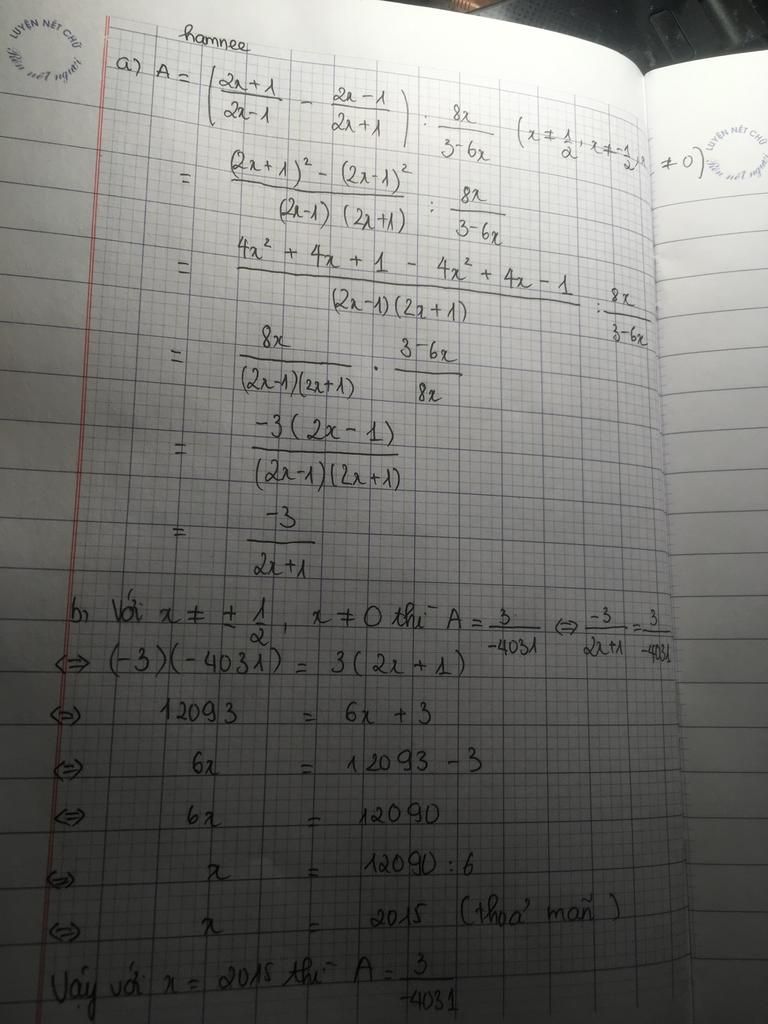 LUYỆN NÉT CHỮ
Rèn nết người
hamnee
a) A = ( (2x+1)/(2x-1) - (2x-1)/(2x+1) ) : 8x/(3-6x) (x ≠ 1/2, x ≠ -1/2, x ≠ 0)
LUYỆN NÉT CHỮ
Rèn nết người
= ((2x+1)² - (2x-1)²)/((2x-1)(2x+1)) : 8x/(3-6x)
= (4x² + 4x + 1 - 4x² + 4x - 1)/((2x-1)(2x+1)) : 8x/(3-6x)
= 8x/((2x-1)(2x+1)) . (3-6x)/8x
= -3(2x-1)/((2x-1)(2x+1))
= -3/(2x+1)
b, Với x ≠ ± 1/2, x ≠ 0 thì A = 3/-4031 ⇔ -3/(2x+1) = 3/-4031
⇔ (-3)(-4031) = 3(2x+1)
⇔ 12093 = 6x + 3
⇔ 6x = 12093 - 3
⇔ 6x = 12090
⇔ x = 12090 : 6
⇔ x = 2015 (thoả mãn)
Vậy với x = 2015 thì A = 3/-4031